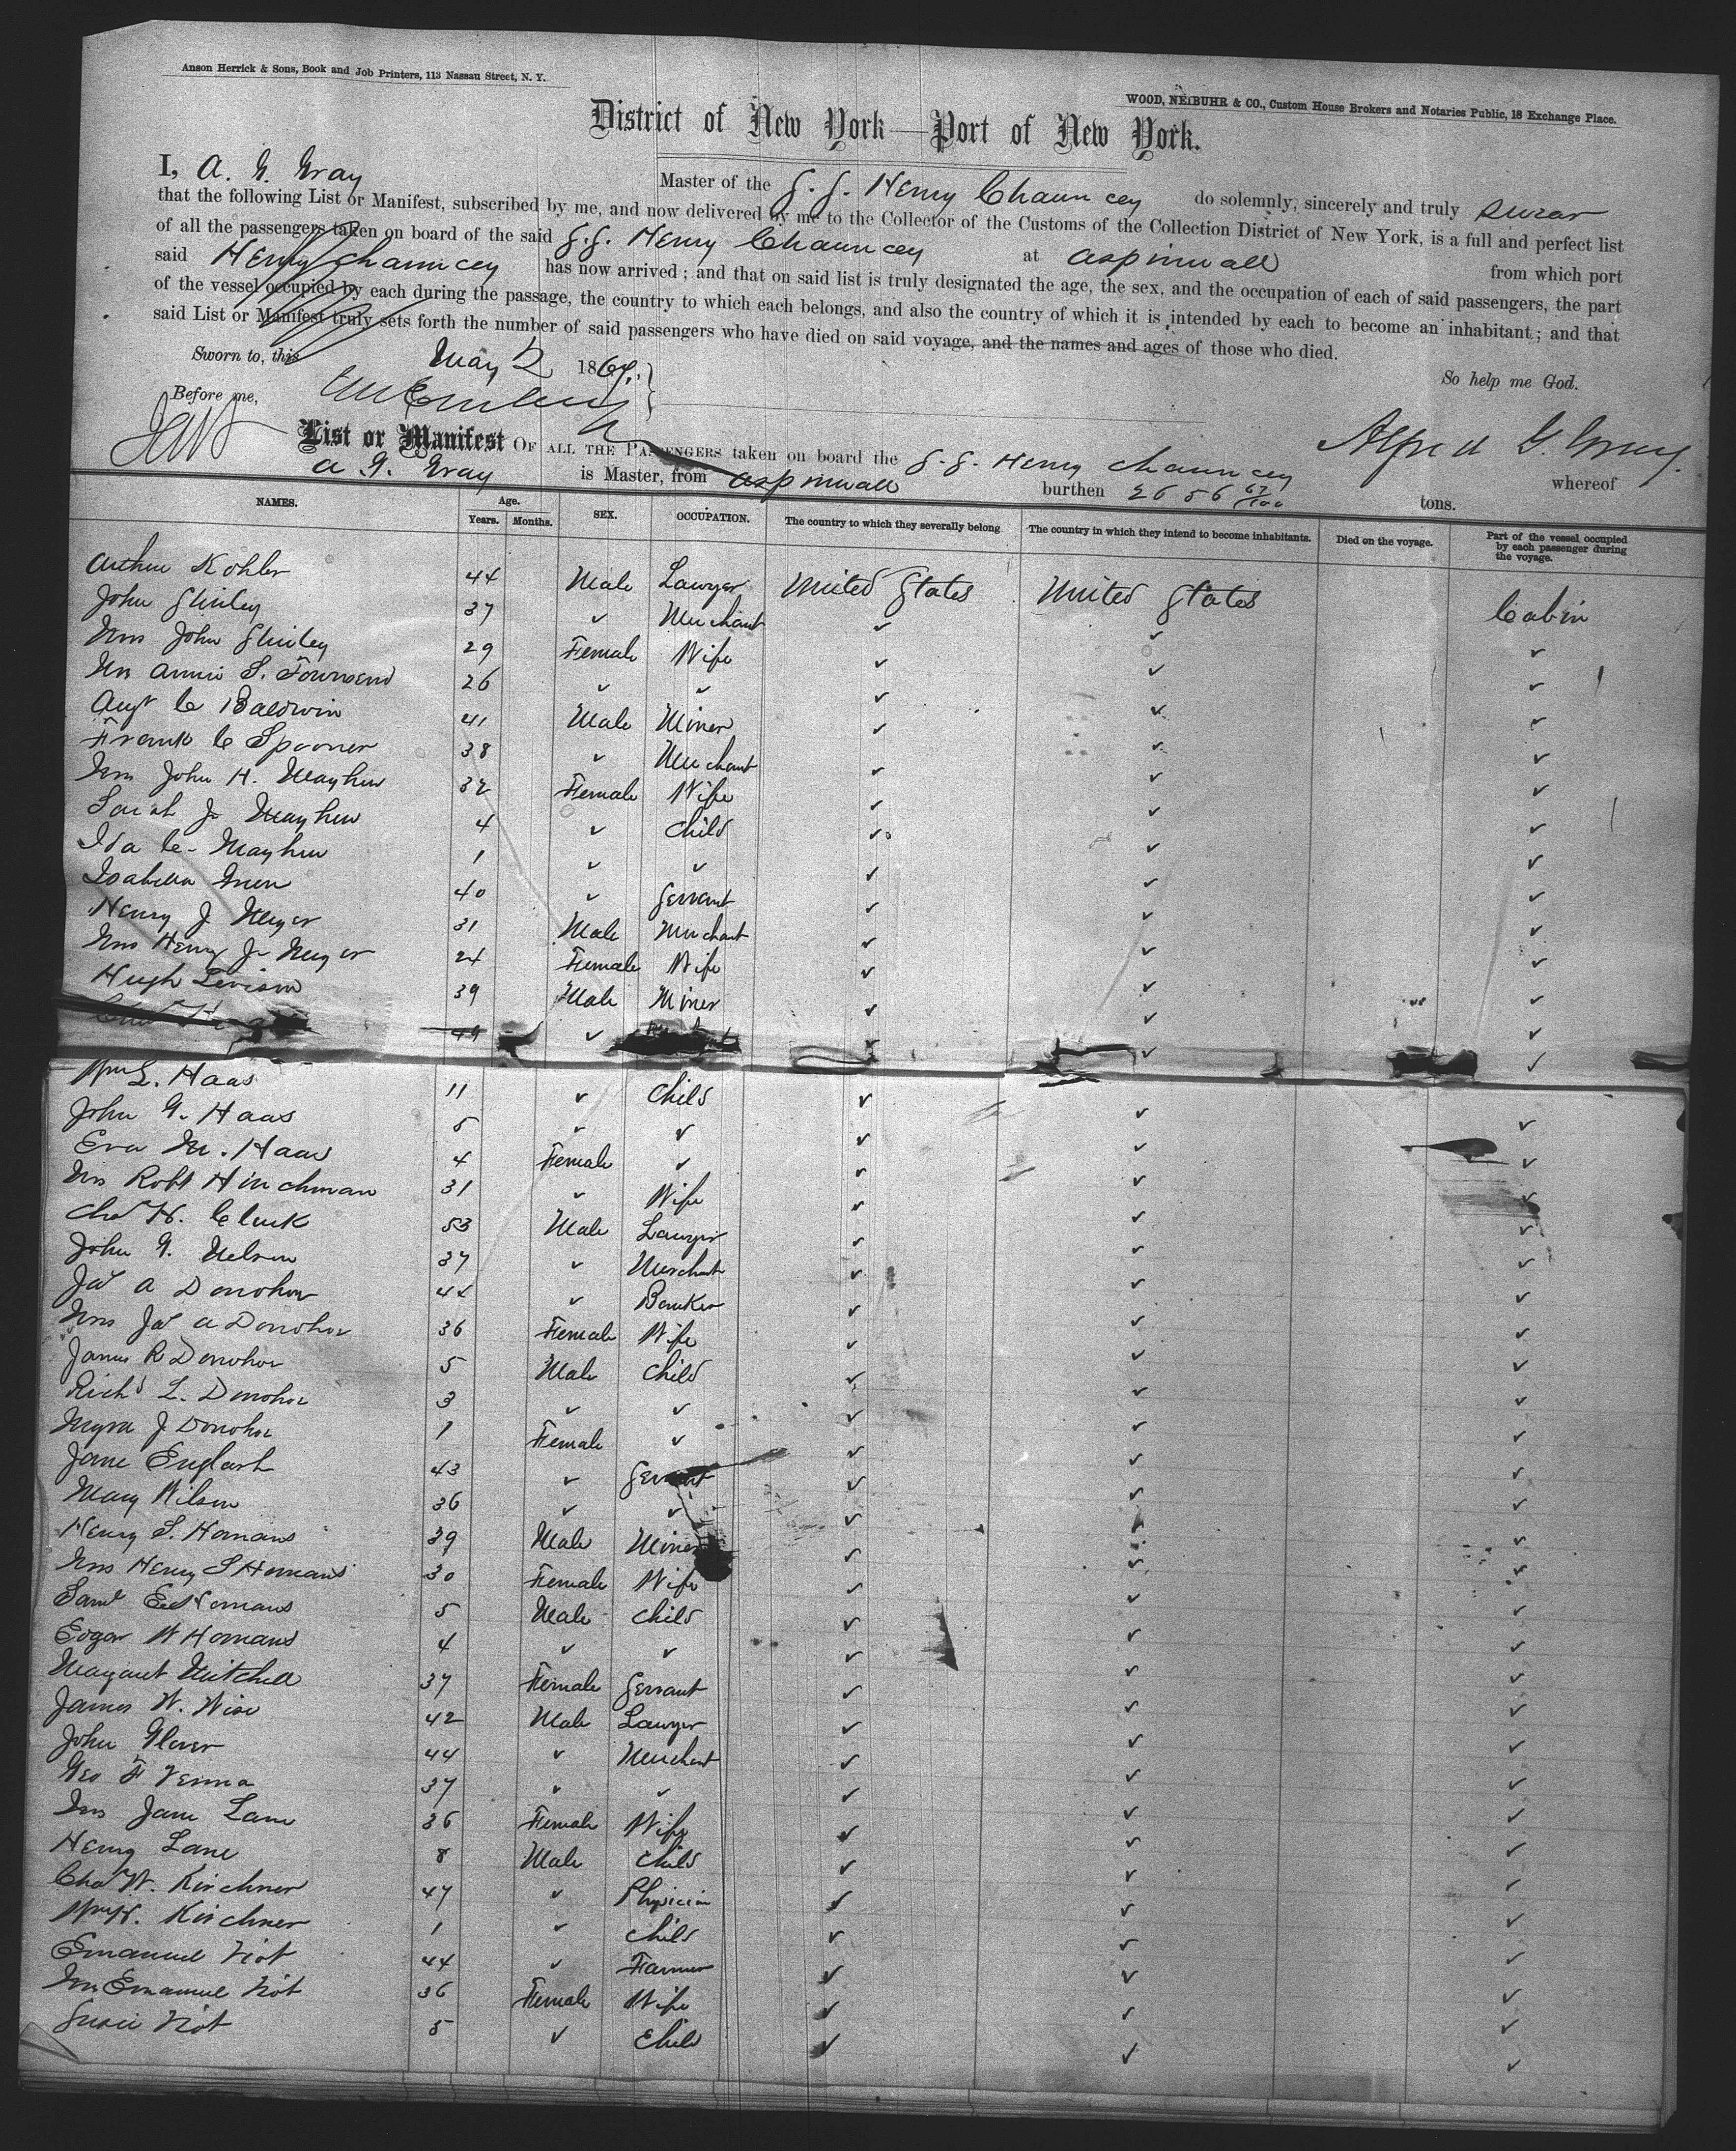 Anson Herrick & Sons, Book and Job Printers, 113 Nassau Street, N. Y.
WOOD, NEIBUHR & CO., Custom House Brokers and Notaries Public, 18 Exchange Place.
District of New York—Port of New York.
I, A. G. Gray Master of the S. S. Henry Chauncey do solemnly, sincerely and truly swear
that the following List or Manifest, subscribed by me, and now delivered by me to the Collector of the Customs of the Collection District of New York, is a full and perfect list
of all the passengers taken on board of the said S.S. Henry Chauncey at Aspinwall from which port
said Henry Chauncey has now arrived; and that on said list is truly designated the age, the sex, and the occupation of each of said passengers, the part
of the vessel occupied by each during the passage, the country to which each belongs, and also the country of which it is intended by each to become an inhabitant; and that
said List or Manifest truly sets forth the number of said passengers who have died on said voyage, and the names and ages of those who died.
Sworn to, this May 2 1869. So help me God.
Before me,
Alfred G. Gray.
List or Manifest OF ALL THE PASSENGERS taken on board the S. S. Henry Chauncey whereof
A G. Gray is Master, from Aspinwall burthen 2656 67/100 tons.
NAMES. Age. Years. Months. SEX. OCCUPATION. The country to which they severally belong. The country in which they intend to become inhabitants. Died on the voyage. Part of the vessel occupied by each passenger during the voyage.
Arthur Kohler 44 Male Lawyer United States United States Cabin
John Shirley 37 ✓ Merchant ✓ ✓ ✓
Mrs John Shirley 29 Female Wife ✓ ✓ ✓
Mrs Annie S. Townsend 26 ✓ ✓ ✓ ✓ ✓
Augt C Baldwin 41 Male Miner ✓ ✓ ✓
Frank C Spooner 38 ✓ Merchant ✓ ✓ ✓
Mrs John H. Mayhew 32 Female Wife ✓ ✓ ✓
Sarah J Mayhew 4 ✓ Child ✓ ✓ ✓
Ida C. Mayhew 1 ✓ ✓ ✓ ✓ ✓
Isabella Green 40 ✓ Servant ✓ ✓ ✓
Henry J Meyer 31 Male Merchant ✓ ✓ ✓
Mrs Henry J Meyer 24 Female Wife ✓ ✓ ✓
Hugh Levison 39 Male Miner ✓ ✓ ✓
49 ✓ ✓ ✓ ✓
Wm L. Haas 11 ✓ Child ✓ ✓ ✓
John G. Haas 5 ✓ ✓ ✓ ✓ ✓
Eva M. Haas 4 Female ✓ ✓ ✓ ✓
Mrs Robt Hinchman 31 ✓ Wife ✓ ✓ ✓
Chas H. Clark 53 Male Lawyer ✓ ✓ ✓
John G. Nelson 37 ✓ Merchant ✓ ✓ ✓
Jas A Donohoe 44 ✓ Banker ✓ ✓ ✓
Mrs Jas A Donohoe 36 Female Wife ✓ ✓ ✓
James R Donohoe 5 Male Child ✓ ✓ ✓
Richd L. Donohoe 3 ✓ ✓ ✓ ✓ ✓
Myra J Donohoe 1 Female ✓ ✓ ✓ ✓
Jane English 43 ✓ Servant ✓ ✓ ✓
Mary Wilson 36 ✓ ✓ ✓ ✓ ✓
Henry S. Homans 39 Male Miner ✓ ✓
Mrs Henry S Homans 30 Female Wife ✓ ✓ ✓
Saml E Homans 5 Male Child ✓ ✓ ✓
Edgar W Homans 4 ✓ ✓ ✓ ✓ ✓
Margaret Mitchell 37 Female Servant ✓ ✓ ✓
James W. Wise 42 Male Lawyer ✓ ✓ ✓
John Glover 44 ✓ Merchant ✓ ✓ ✓
Geo F 37 ✓ ✓ ✓ ✓ ✓
Mrs Jane Lane 36 Female Wife ✓ ✓ ✓
Henry Lane 8 Male Child ✓ ✓ ✓
Chas W. Kirchner 47 ✓ Physician ✓ ✓ ✓
Wm H. Kirchner 1 ✓ Child ✓ ✓ ✓
Emanuel Viot 44 ✓ Farmer ✓ ✓ ✓
Mrs Emanuel Viot 36 Female Wife ✓ ✓ ✓
Susie Viot 5 ✓ Child ✓ ✓ ✓